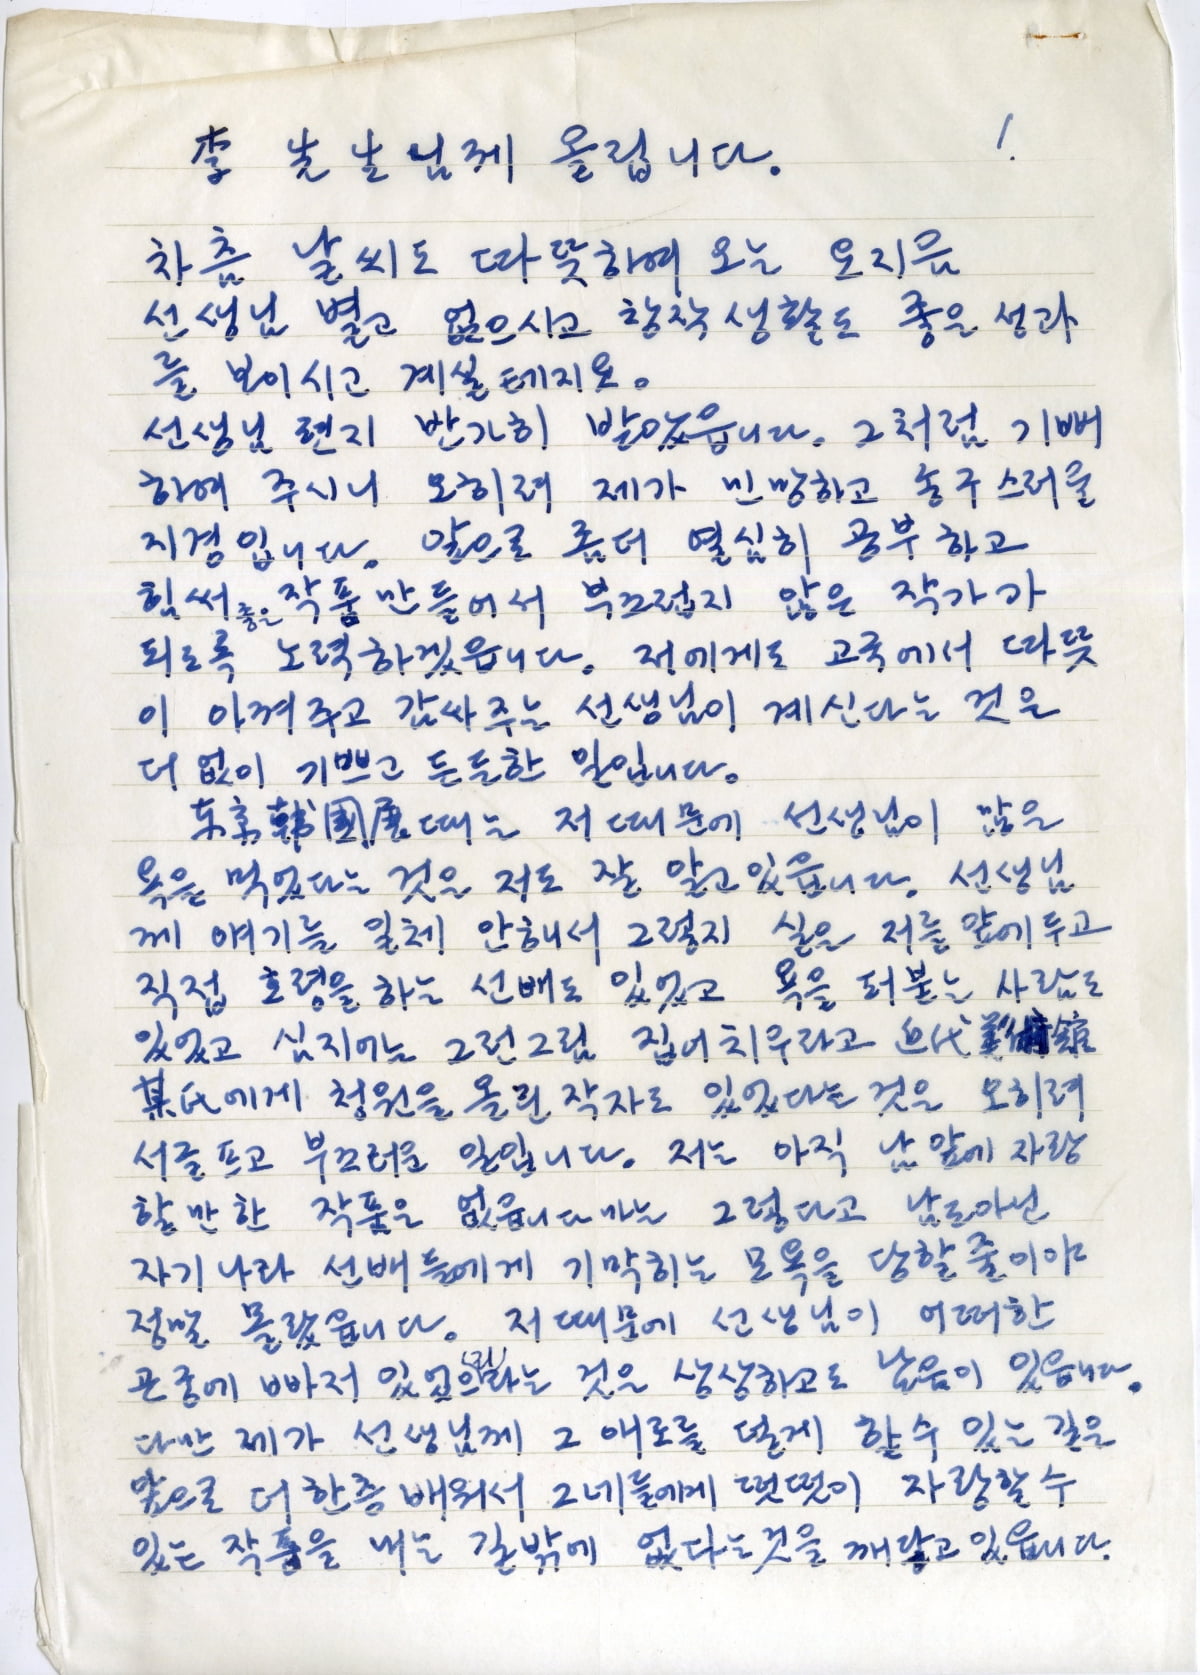 李 先生님께 올립니다. 1.
차츰 날씨도 따뜻하여 오는 요지음
선생님 별고 없으시고 창작생활도 좋은 성과
를 보이시고 계실테지요.
선생님 편지 반가히 받았읍니다. 그처럼 기뻐
하여 주시니 오히려 제가 민망하고 송구스러울
지경입니다. 앞으로 좀더 열심히 공부하고
힘써 좋은 작품 만들어서 부끄럽지 않은 작가가
되도록 노력하겠읍니다. 저에게도 고국에서 따뜻
이 아껴주고 감싸주는 선생님이 계신다는 것은
더없이 기쁘고 든든한 일입니다.
东京韓國展때는 저 때문에 선생님이 많은
욕을 먹었다는 것은 저도 잘 알고 있읍니다. 선생님
께 얘기를 일체 안해서 그렇지 실은 저를 앞에 두고
직접 호령을 하는 선배도 있었고 욕을 퍼붇는 사람도
있었고 심지어는 그런그림 집어치우라고 近代美術館
某氏에게 청원을 올린 작자도 있었다는 것은 오히려
서글프고 부끄러운 일입니다. 저는 아직 남 앞에 자랑
할만한 작품은 없읍니다마는 그렇다고 남도아닌
자기나라 선배들에게 기막히는 모욕을 당할 줄이야
정말 몰랐읍니다. 저 때문에 선생님이 어떠한
곤중에 빠저 있었으리라는 것은 상상하고도 남음이 있읍니다.
다만 제가 선생님께 그 애로를 덜게 할수 있는 길은
앞으로 더 한층 배워서 그네들에게 떳떳이 자랑할 수
있는 작품을 내는 길밖에 없다는것을 깨닫고 있읍니다.